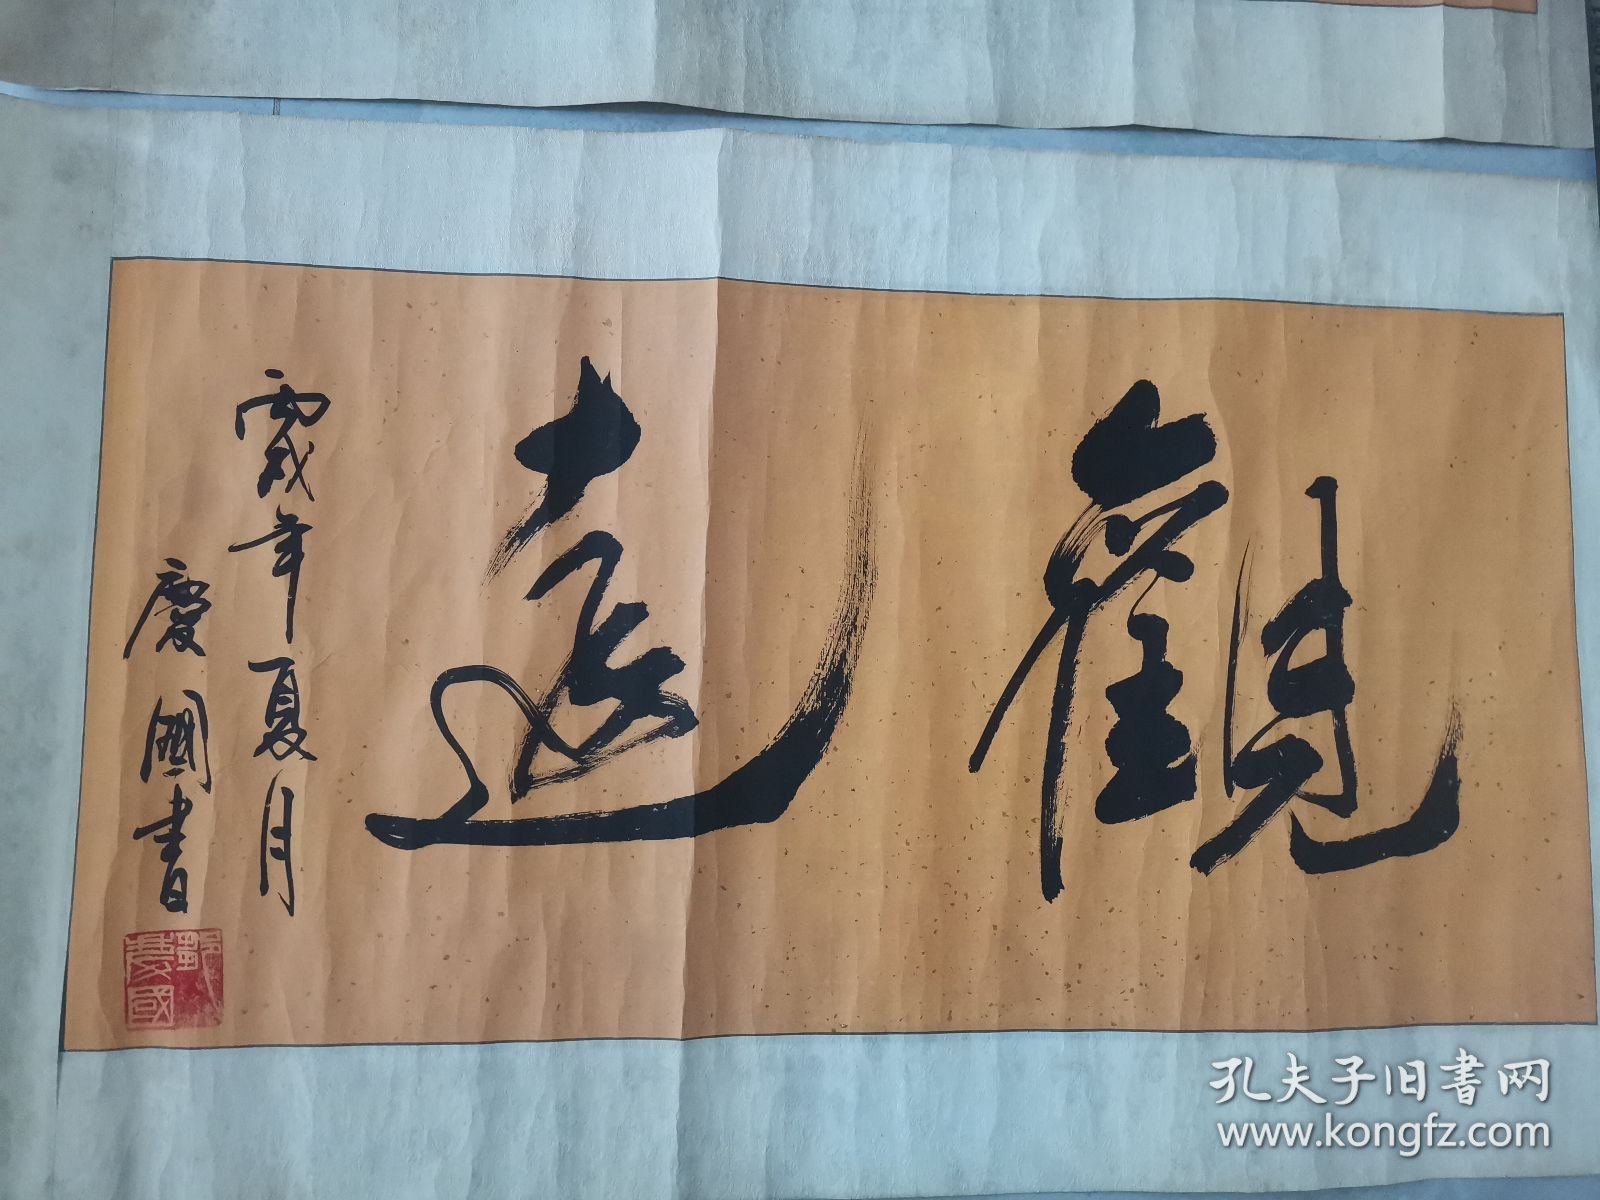 觀遠
丙戌年夏月
慶國書
鄧慶國
孔夫子旧书网
www.kongfz.com